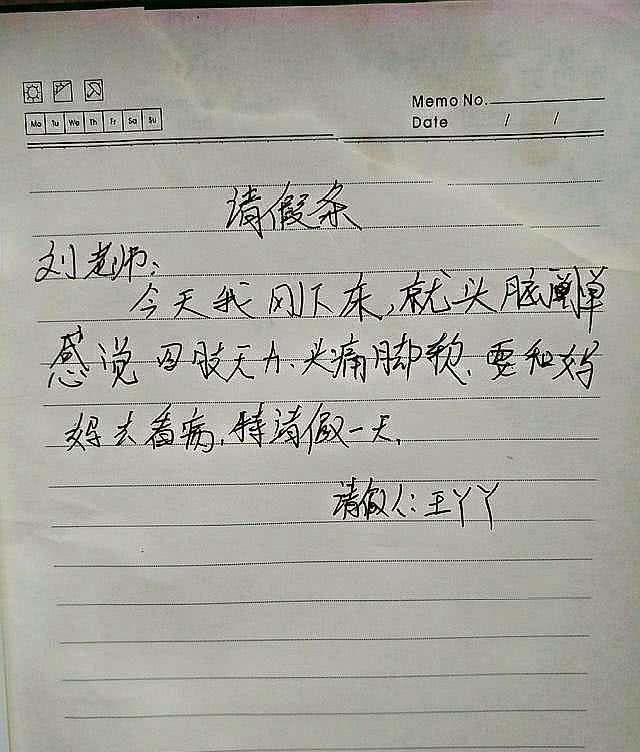 Memo No.
Date / /
Mo Tu We Th Fr Sa Su
请假条
刘老师:
今天我刚下床,就头脑
感说四肢无力、头痛脚软,要和妈
妈去看病,特请假一天,
请假人:王丫丫